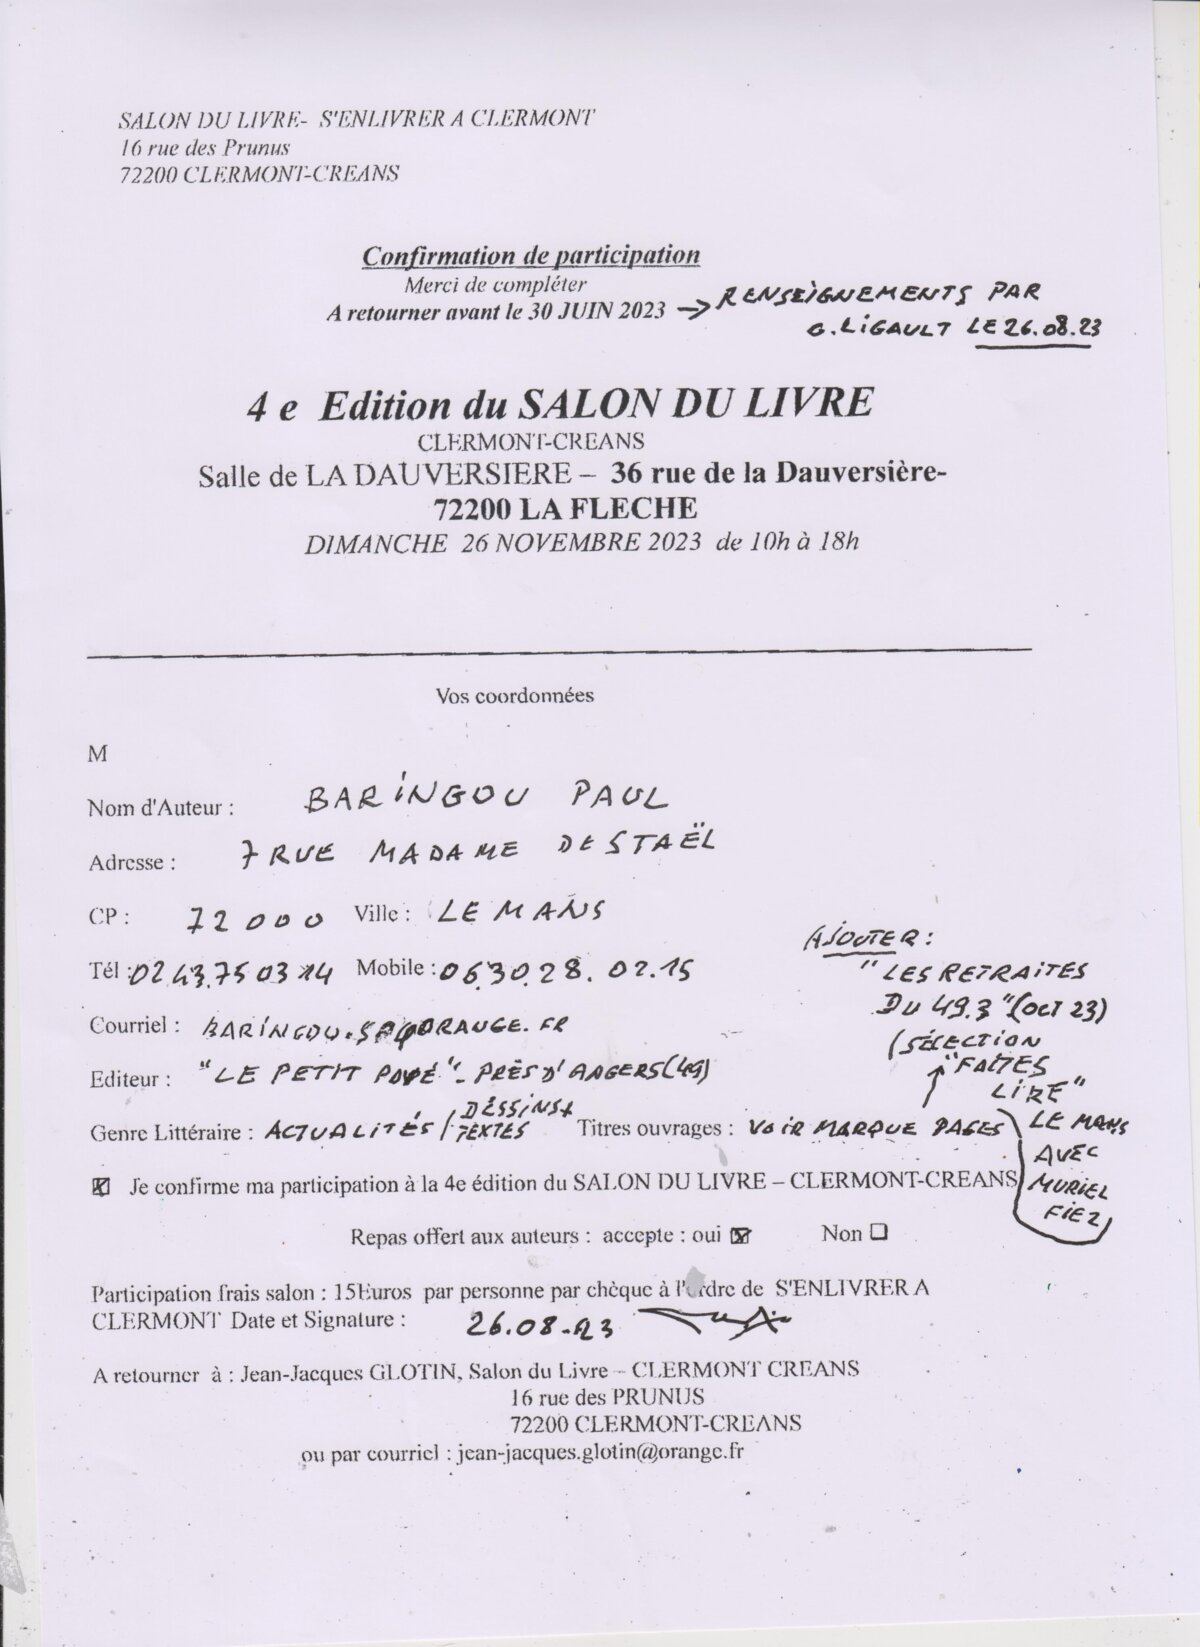 SALON DU LIVRE- S'ENLIVRER A CLERMONT
16 rue des Prunus
72200 CLERMONT-CREANS
Confirmation de participation
Merci de compléter
A retourner avant le 30 JUIN 2023 → RENSEIGNEMENTS PAR
G. LIGAULT LE 26.08.23
4 e Edition du SALON DU LIVRE
CLERMONT-CREANS
Salle de LA DAUVERSIERE – 36 rue de la Dauversière-
72200 LA FLECHE
DIMANCHE 26 NOVEMBRE 2023 de 10h à 18h
Vos coordonnées
M
Nom d'Auteur : BARINGOU PAUL
Adresse : 7 RUE MADAME DE STAËL
CP : 72000 Ville : LE MANS
Tél : 02.43.75 03 14 Mobile : 06.30.28.02.15
Courriel : @ORANGE.FR
Editeur : "LE PETIT PAVÉ" - PRÈS D'ANGERS (49)
Genre Littéraire : ACTUALITÉS / DESSINS + TEXTES Titres ouvrages : VOIR MARQUE PAGES
AJOUTER :
"LES RETRAITES
DU 49.3" (OCT 23)
(SÉLECTION
"FAITES
LIRE"
LE MANS
AVEC
MURIEL
FIEZ
Je confirme ma participation à la 4e édition du SALON DU LIVRE – CLERMONT-CREANS
Repas offert aux auteurs : accepte : oui Non
Participation frais salon : 15Euros par personne par chèque à l'ordre de S'ENLIVRER A
CLERMONT Date et Signature : 26.08.23
A retourner à : Jean-Jacques GLOTIN, Salon du Livre – CLERMONT CREANS
16 rue des PRUNUS
72200 CLERMONT-CREANS
ou par courriel : jean-jacques.glotin@orange.fr